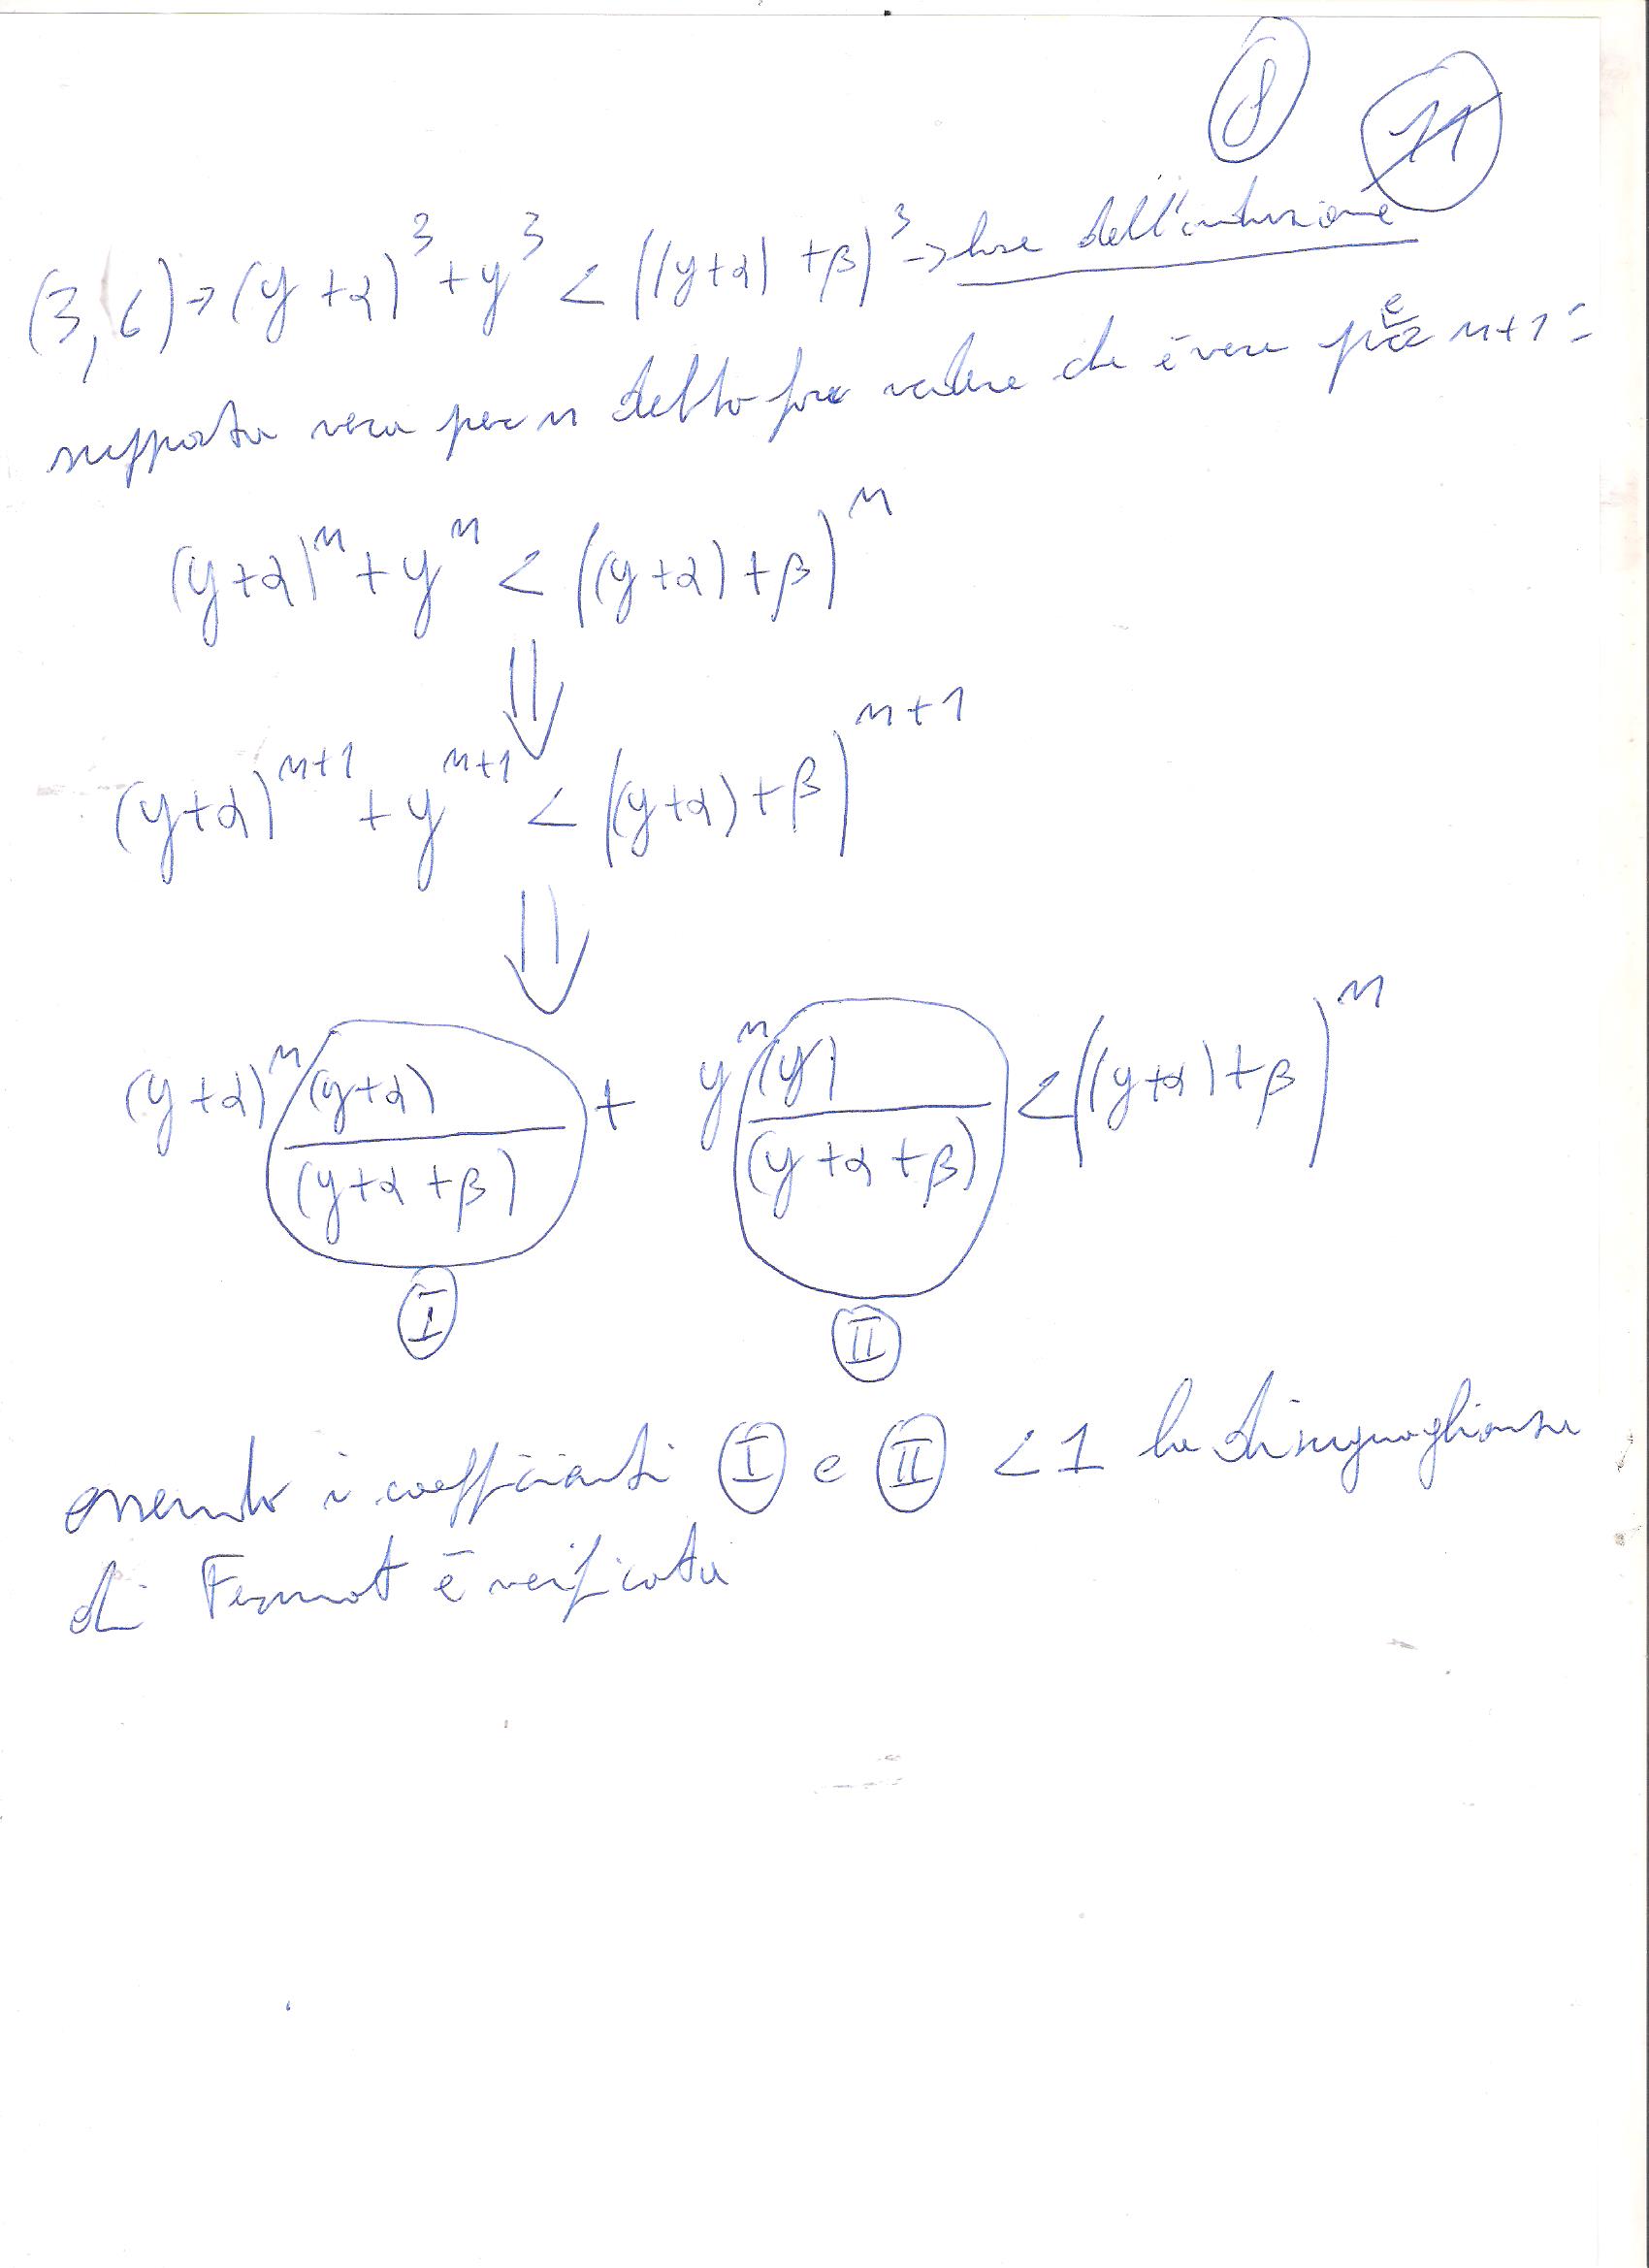 8 11
(3,6) → (y+α)³ + y³ < ((y+α)+β)³ → base dell'induzione
supposta vera per n debbo far vedere che è vera per n+1:
(y+α)ⁿ + yⁿ < ((y+α)+β)ⁿ
⇓
(y+α)ⁿ⁺¹ + yⁿ⁺¹ < ((y+α)+β)ⁿ⁺¹
⇓
(y+α)ⁿ (y+α)/(y+α+β) + yⁿ (y)/(y+α+β) < ((y+α)+β)ⁿ
I II
essendo i coefficienti I e II < 1 la disuguaglianza
di Fermat è verificata